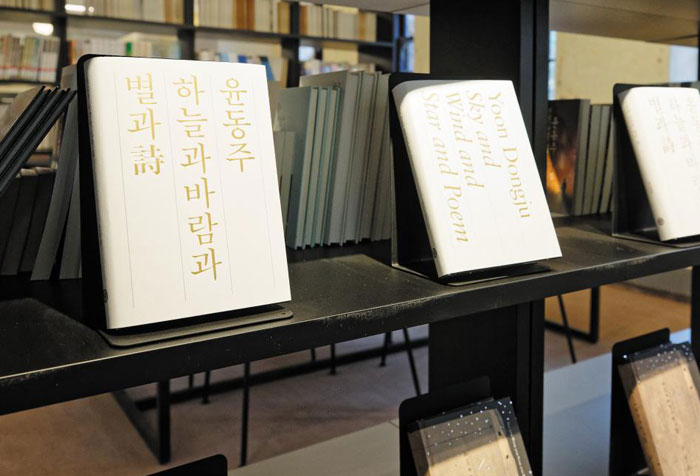 윤동주
하늘과 바람과
별과 詩
Yoon Dongju
Sky and
Wind and
Star and Poem